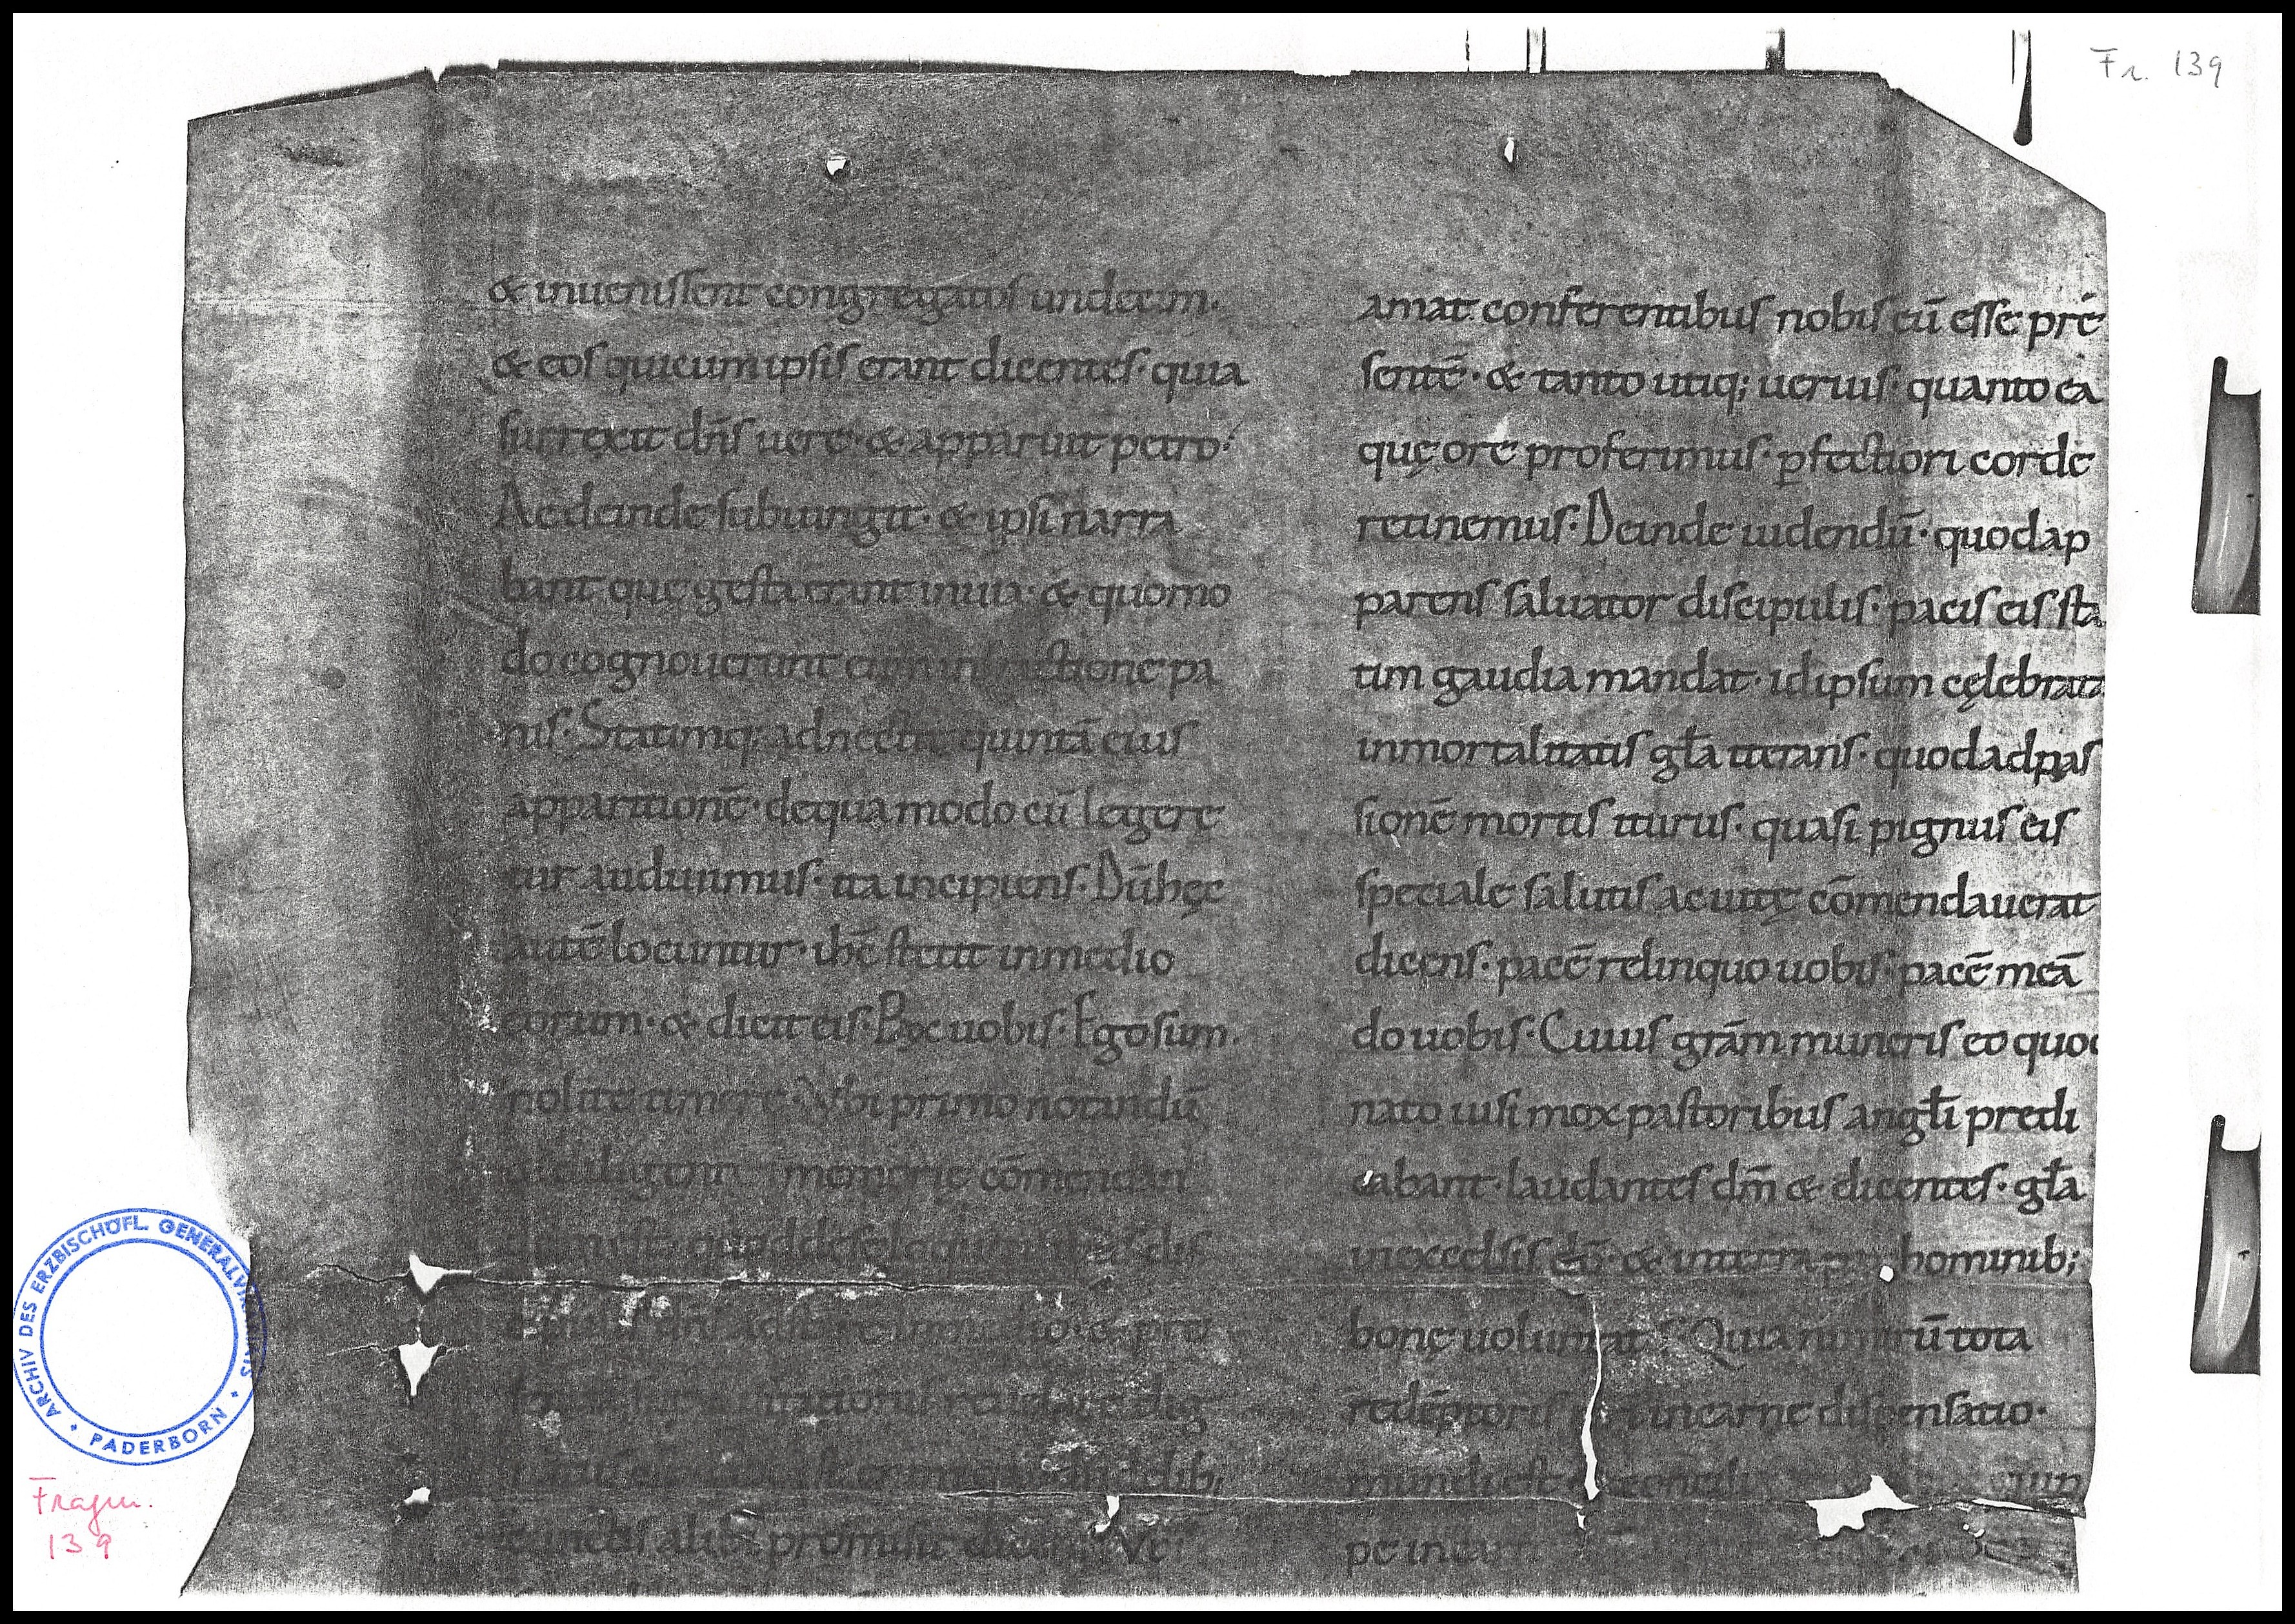 Fr. 139
& inuenissent congregatos undecim·
& eos qui cum ipsis erant dicentes· quia
surrexit dn̄s uere· & apparuit petro·
Ac deinde subiungit· & ipsi narra
bant quę gesta erant in uia· & quomo
do cognouerunt eum in fractione pa
nis· Statimq; adnectit quintā eius
apparitionē· de qua modo cū legere
tur audiuimus· ita incipiens· Dū hęc
autē locuntur· ih̄c stetit in medio
eorum· & dicit eis· Pax uobis· Ego sum·
nolite timere· Vbi primo notandū
diligenti memorię cōmendandū
dis
pro
dig
dib;
alibi promisit dicens Vbi
amat conferentibus nobis eū esse pre
sentē· & tanto utiq; uerius· quanto ea
quę ore proferimus· p̲fectiori corde
retinemus· Deinde uidendū· quod ap
parens saluator discipulis· pacis eis sta
tim gaudia mandat· id ipsum cęlebrata
inmortalitatis gl̄a iterans· quod ad pas
sionē mortis iturus· quasi pignus eis
speciale salutis ac uitę cōmendauerat
dicens· pacē relinquo uobis· pacē meā
do uobis· Cuius grām muneris eo quod
nato uisi mox pastoribus angl̄i predi
cabant· laudantes dm̄ & dicentes· gl̄a
in excelsis dō· & in terra hominib;
bonę uoluntat Quia nimirū tota
redēptoris in carne dispensatio·
mundi est
pe in
ARCHIV DES ERZBISCHÖFL. GENERALVIKARIATS · PADERBORN ·
Fragm.
139